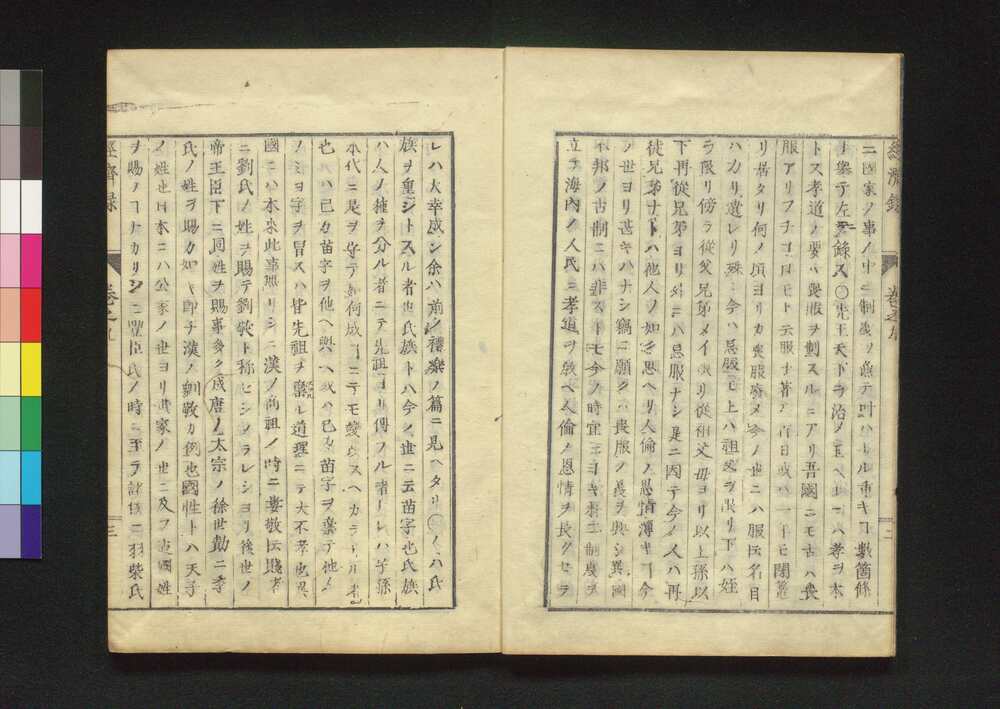 經濟録
卷之九
二
ニ國家ノ事ノ中ニ制度ヲ立テ叶ハサル重キ「數箇條
ヲ擧テ左ニ録ス〇先王天下ヲ治メ玉ヘルニハ孝ヲ本
トス孝道ノ要ハ喪服ヲ制スルニアリ吾國ニモ古ハ喪
服アリフヂゴロモト云服ヲ著テ百日或ハ一年モ閉籠
リ居タリ何ノ頃ヨリカ喪服廢メ今ノ世ニハ服ト云名目
ハカリ遺レリ殊ニ今ハ忌服モ上ハ祖父ヲ限リ下ハ姪
ヲ限リ傍ラ從父兄弟メイ限リ從祖父母ヨリ以上孫以
下再從兄弟ヨリ外ニハ忌服ナシ是ニ因テ今ノ人ハ再
從兄弟ナトハ他人ノ如ク思ヘリ人倫ノ恩情薄キ「今
ノ世ヨリ甚キハナシ竊ニ願クハ喪服ノ義ヲ興シ異國
本邦ノ古制ニハ非ストモ今ノ時宜ニヨキ樣ニ制度ヲ
立テ海内ノ人民ニ孝道ヲ教ヘ人倫ノ恩情ヲ長クセラ
レハ大幸成ン余ハ前ノ禮樂ノ篇ニ見ヘタリ〇人ハ氏
族ヲ重シトスル者也氏族トハ今ノ世ニ云苗字也氏族
ハ人ノ種ヲ分ル者ニテ先祖ヨリ傳フル者ナレハ子孫
永代ニ是ヲ守テ如何成「ニテモ變ウスヘカラサル者
也ハ己カ苗字ヲ他ヘ與ヘ或ハ己カ苗字ヲ棄テ他ノ
ノ苗字ヲ冒スハ皆先祖ヲ蔑ル道理ニテ大不孝也異
國ニハ本來此事無リシニ漢ノ高祖ノ時ニ婁敬ト云賤者
ニ劉氏ノ姓ヲ賜テ劉敬ト稱セシメラレシヨリ後世ノ
帝王臣下ニ同姓ヲ賜事多ク成唐ノ太宗ノ徐世勣ニ李
氏ノ姓ヲ賜カ如キ即チ漢ノ劉敬カ例也國姓トハ天子
ノ姓也日本ニハ公家ノ世ヨリ武家ノ世ニ及フ迄國姓
ヲ賜ノ「ナカリシニ豐臣氏ノ時ニ至テ諸侯ニ羽柴氏
經濟録
卷之九
三